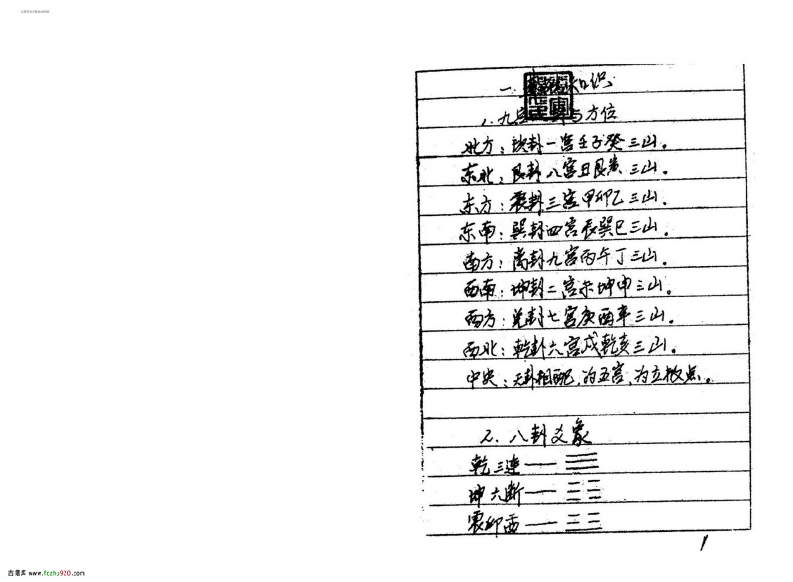 一、知识
1.九宫与方位
北方：坎卦一宫壬子癸三山。
东北：艮卦八宫丑艮寅三山。
东方：震卦三宫甲卯乙三山。
东南：巽卦四宫辰巽巳三山。
南方：离卦九宫丙午丁三山。
西南：坤卦二宫未坤申三山。
西方：兑卦七宫庚酉辛三山。
西北：乾卦六宫戌乾亥三山。
中央：无卦相配，为五宫，为立极点。
2.八卦爻象
乾三连——☰
坤六断——☷
震仰盂——☳
1
古籍库 www.fczhu920.com